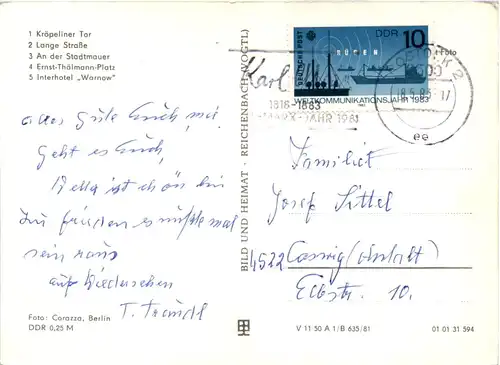 1 Kröpeliner Tor
2 Lange Straße
3 An der Stadtmauer
4 Ernst-Thälmann-Platz
5 Interhotel „Warnow"
alles Gute Euch, mal
geht es Euch,
ist schön bin
zu frieden es mußte mal
sein raus
auf Wiedersehen
T.
Foto: Corazza, Berlin
DDR 0,25 M
BILD UND HEIMAT · REICHENBACH (VOGTL)
DEUTSCHE POST
DDR 10
RÜGEN
WELTKOMMUNIKATIONSJAHR 1983
Karl
1818-1883
MARX-JAHR 1983
2500
18.5.83
17
ee
Foto
Familie
Josef Sittel
4522 Coswig (Anhalt)
Elbstr. 10.
V 11 50 A 1/B 635/81
01 01 31 594